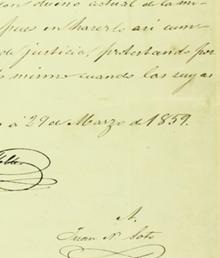 dueño actual de la
pues en hacerlo asi
de justicia, protestando por
mismo cuando las
á 29 de Marzo de 1859.
A.
Juan N. Soto